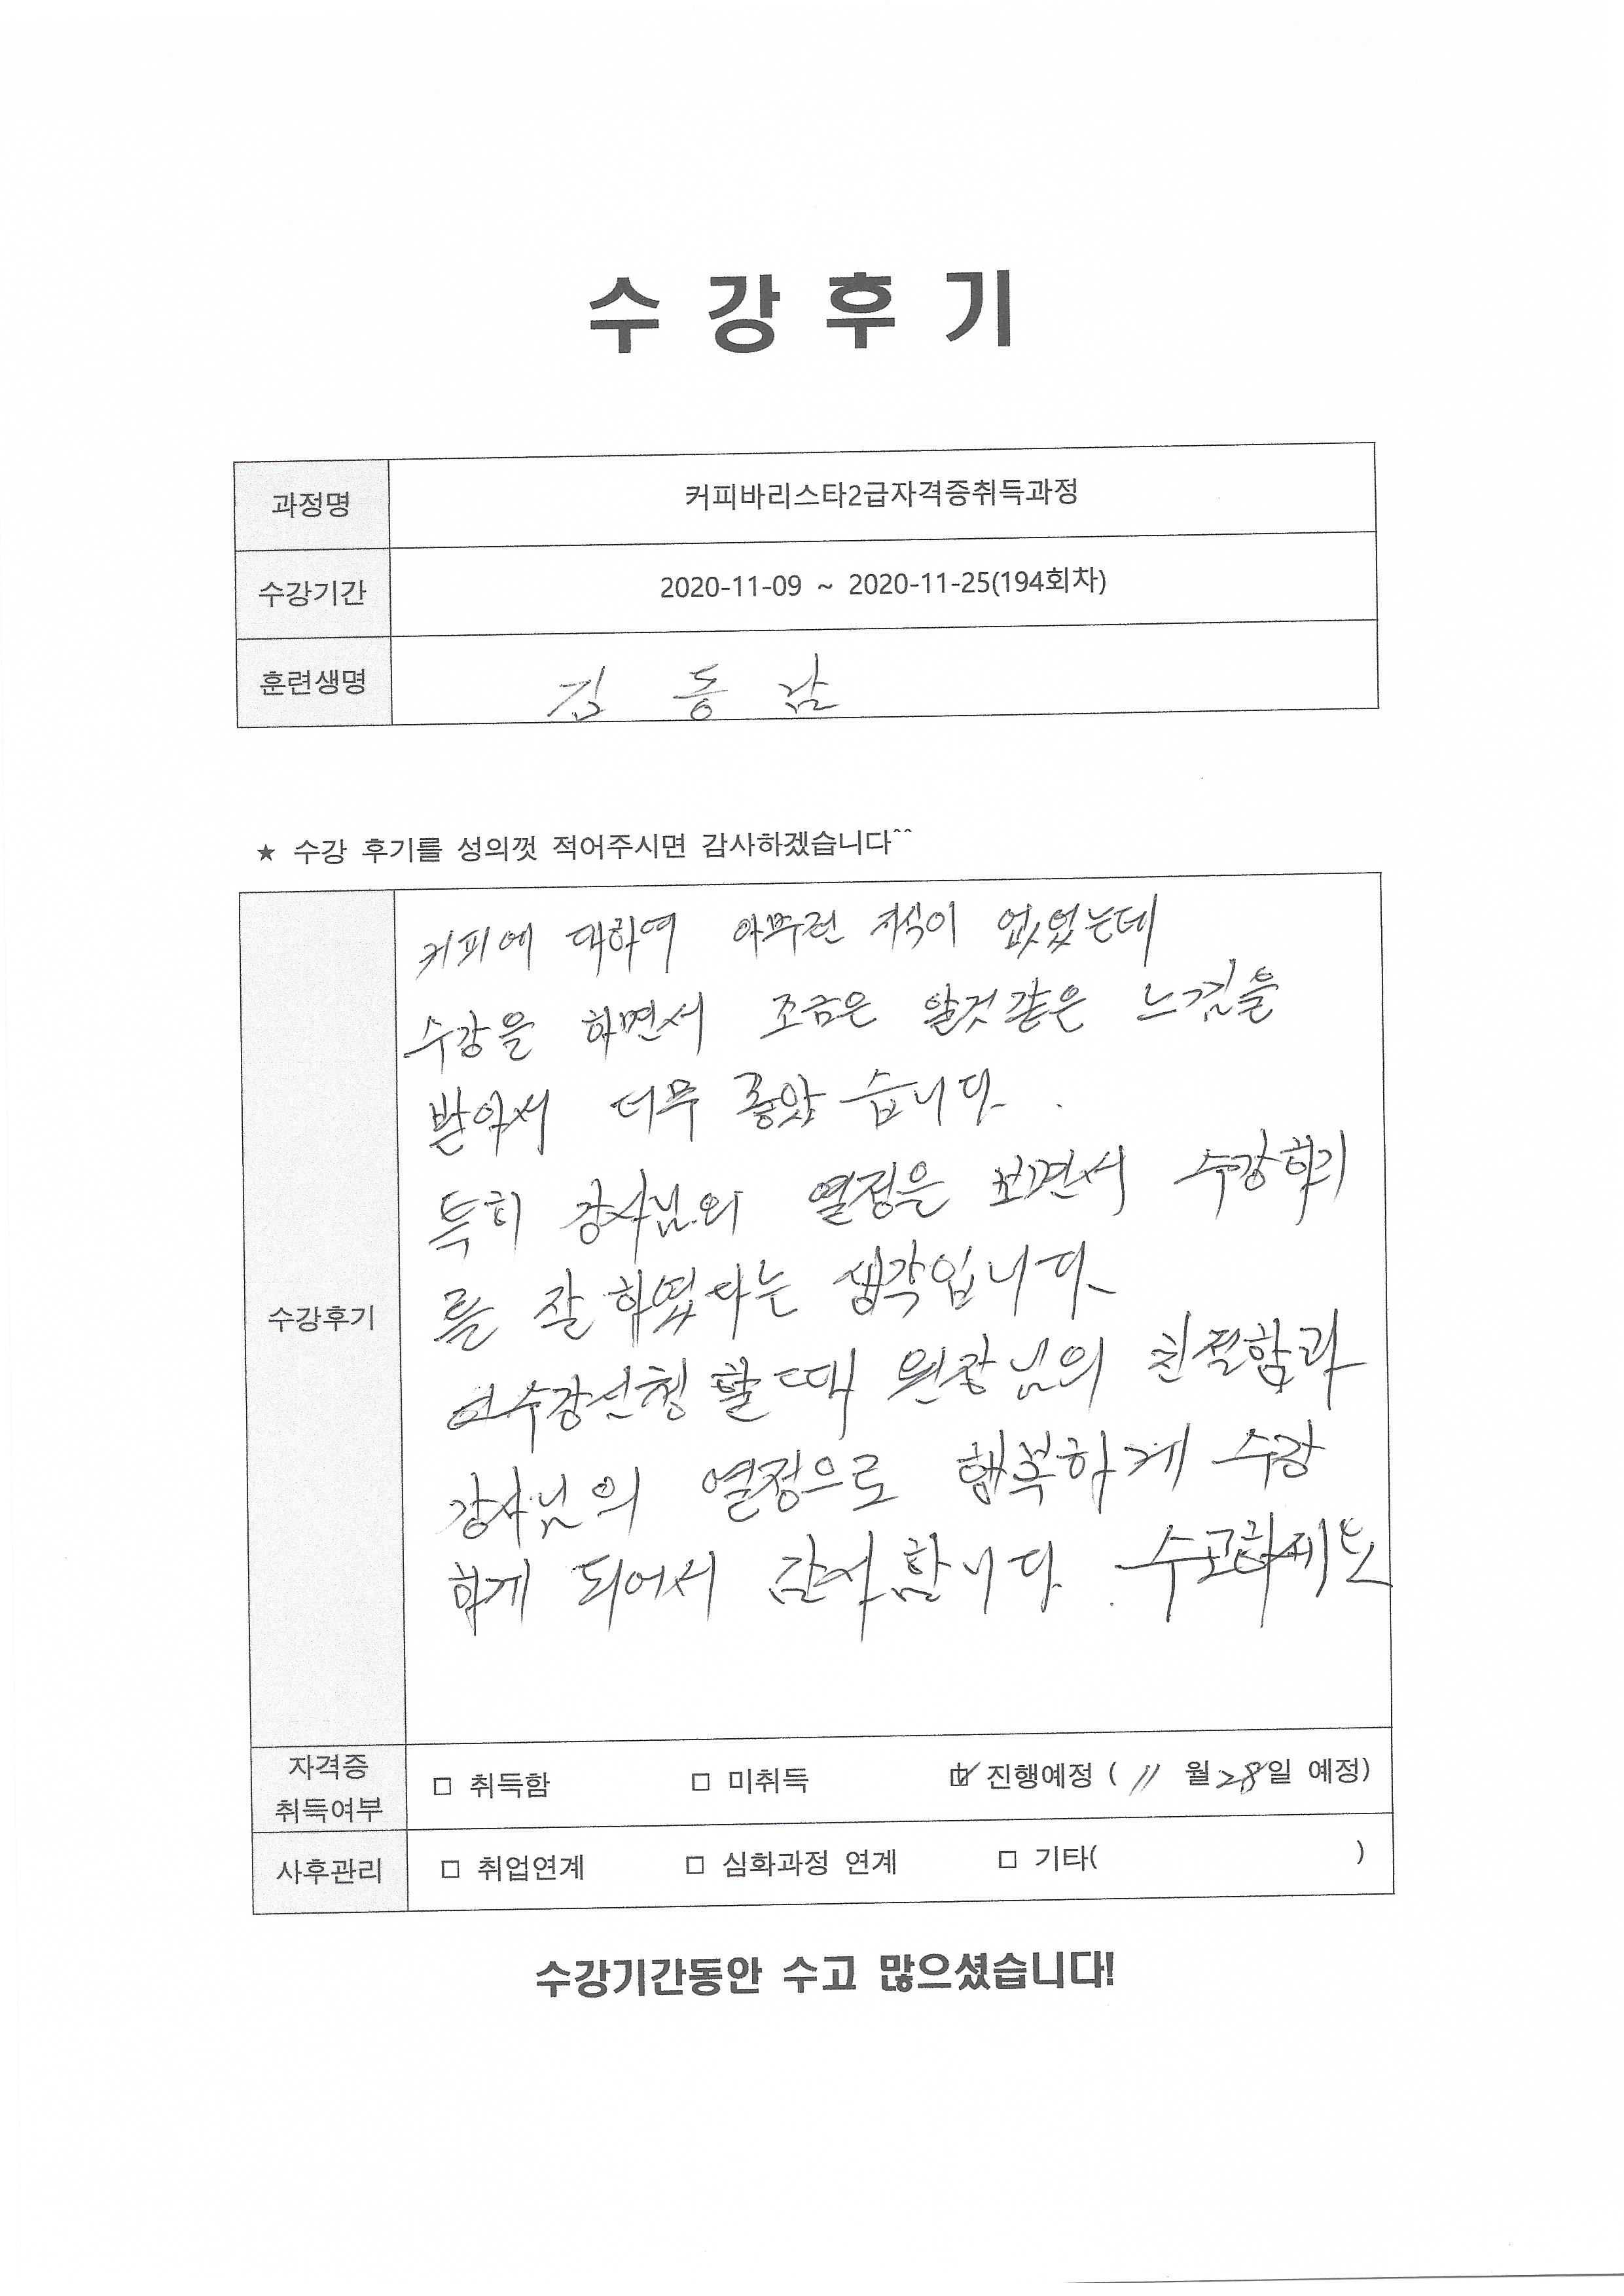 수 강 후 기
과정명 커피바리스타2급자격증취득과정
수강기간 2020-11-09 ~ 2020-11-25(194회차)
훈련생명 김 동
★ 수강 후기를 성의껏 적어주시면 감사하겠습니다^^
수강후기
커피에 대하여 아무런 지식이 없었는데
수강을 하면서 조금은 알것같은 느낌을
받아서 너무 좋았습니다.
특히 강사님의 열정을 보면서 수강하기
를 잘하였다는 생각입니다
수강신청 할때 원장님의 친절함과
강사님의 열정으로 행복하게 수강
하게 되어서 감사합니다. 수고하세요
자격증
취득여부
□ 취득함 □ 미취득 ☑ 진행예정 ( 11 월 28일 예정)
사후관리 □ 취업연계 □ 심화과정 연계 □ 기타( )
수강기간동안 수고 많으셨습니다!